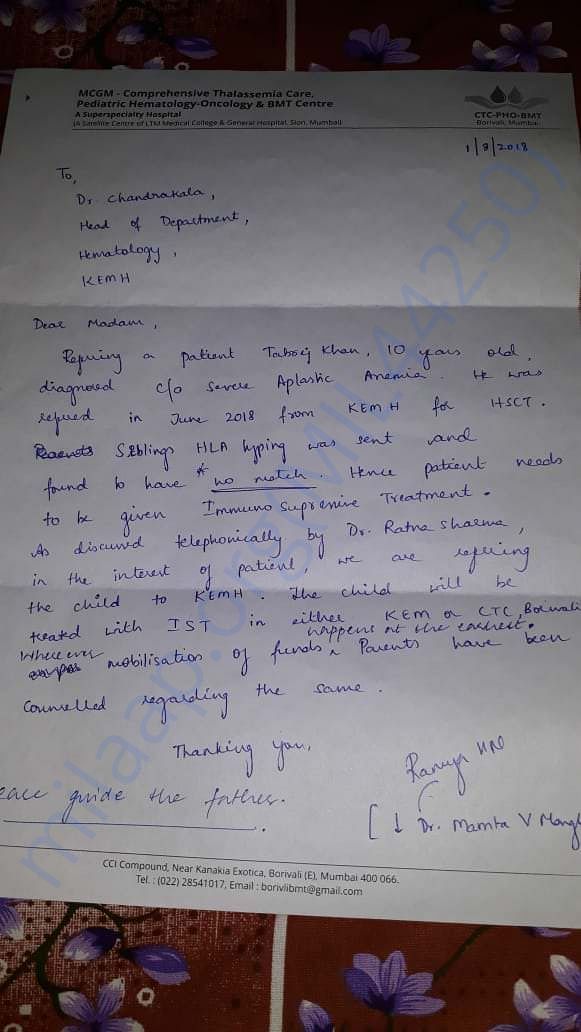 MCGM - Comprehensive Thalassemia Care,
Pediatric Hematology-Oncology & BMT Centre
A Superspecialty Hospital
(A Satellite Centre of LTM Medical College & General Hospital, Sion, Mumbai)
CTC-PHO-BMT
Borivali, Mumbai
1/8/2018
To,
Dr. Chandrakala,
Head of Department,
Hematology,
KEMH
Dear Madam,
a patient Khan, 10 years old,
diagnosed c/o Severe Aplastic Anemia. He was
refered in June 2018 from KEMH for HSCT.
Siblings HLA typing was sent and
found to have * no match. Hence patient needs
to be given Immuno Treatment.
As discussed telephonically by Dr. Ratna Sharma,
in the interest of patient, we are refering
the child to KEMH. The child will be
treated with IST in either KEM or CTC, Borivali
happens at the earliest.
Wherever mobilisation of funds ^ Parents have been
Counselled regarding the same.
Thanking you,
guide the father.
[ ↓ Dr. Mamta V
CCI Compound, Near Kanakia Exotica, Borivali (E), Mumbai 400 066.
Tel. : (022) 28541017, Email : borivlibmt@gmail.com
milaap.org(MIL44250)